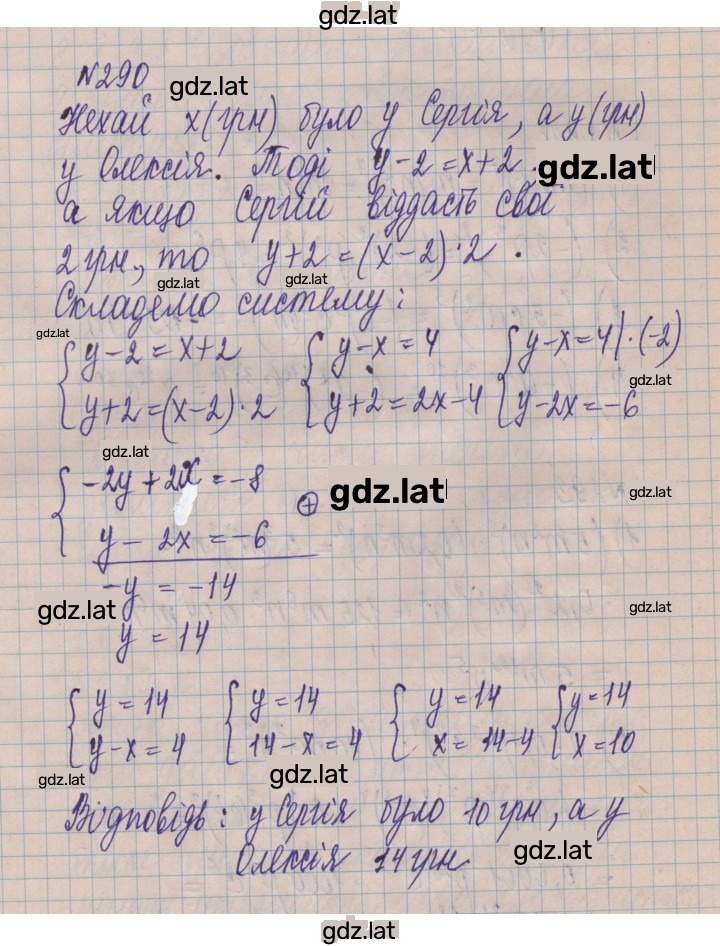 gdz.lat
№290
gdz.lat
Нехай x(грн) було у Сергія, а y(грн)
у Олексія. Тоді y-2=x+2
gdz.lat
а якщо Сергій віддасть свої
2 грн, то y+2=(x-2)·2.
gdz.lat gdz.lat
Складемо систему:
gdz.lat
{y-2=x+2 {y-x=4 {y-x=4|·(-2)
gdz.lat
{y+2=(x-2)·2 {y+2=2x-4 {y-2x=-6
gdz.lat
{-2y+2x=-8
⊕ gdz.lat gdz.lat
{y-2x=-6
-y=-14
gdz.lat gdz.lat
y=14
{y=14 {y=14 {y=14 {y=14
{y-x=4 {14-x=4 {x=14-4 {x=10
gdz.lat gdz.lat
Відповідь: у Сергія було 10 грн, а у
Олексія 14 грн
gdz.lat
gdz.lat